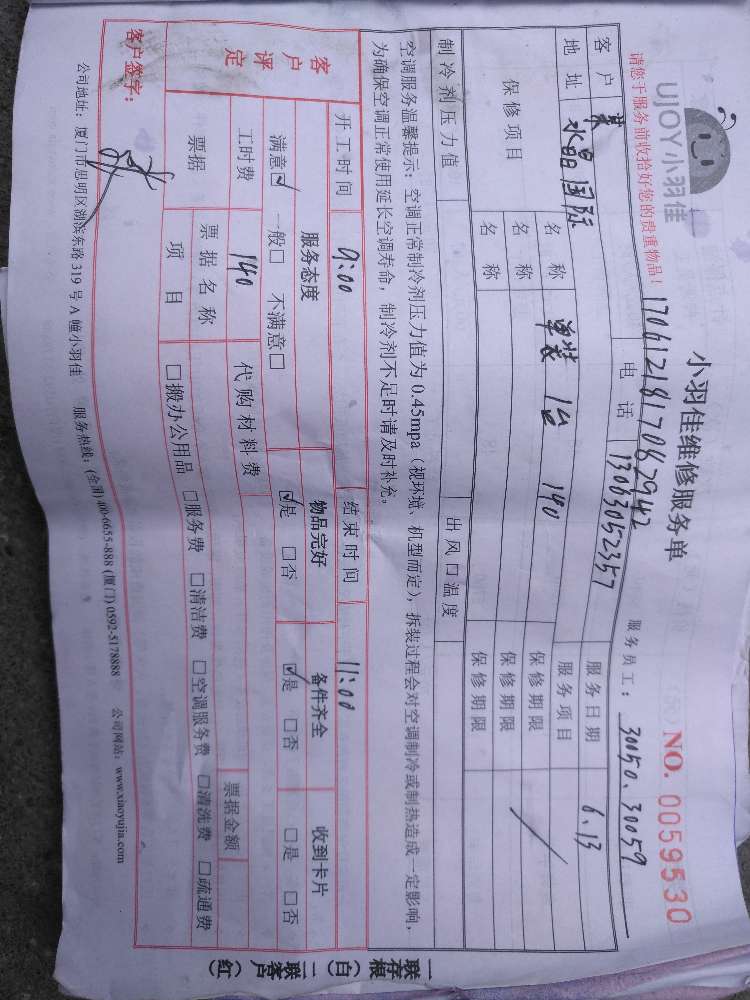 UJOY小羽佳
小羽佳维修服务单
NO. 0059530
请您于服务前收拾好您的贵重物品！
17061218170629142
服务员工：30050.30059
客户
电话 13063052357
服务日期 6.13
地址 水晶国际
服务项目
保修项目
名称 单装 1台 190
保修期限
名称
保修期限
名称
保修期限
制冷剂压力值
出风口温度
空调服务温馨提示：空调正常制冷剂压力值为0.45mpa（视环境、机型而定），拆装过程会对空调制冷或制热造成一定影响，
为确保空调正常使用延长空调寿命，制冷剂不足时请及时补充。
开工时间 9:00 结束时间 11:00
客户评定
服务态度 物品完好 备件齐全 收到卡片
满意☑ 一般□ 不满意□ ☑是 □否 ☑是 □否 □是 □否
工时费 140 代购材料费
票据 票据名称 票据金额
项目 □搬办公用品 □服务费 □清洁费 □空调服务费 □清洗费 □疏通费
客户签字：
公司地址：厦门市思明区湖滨东路319号A幢小羽佳 服务热线：(全国)400-6655-888 (厦门) 0592-5178888 公司网站：www.xiaoyujia.com
一联存根（白）二联客户（红）